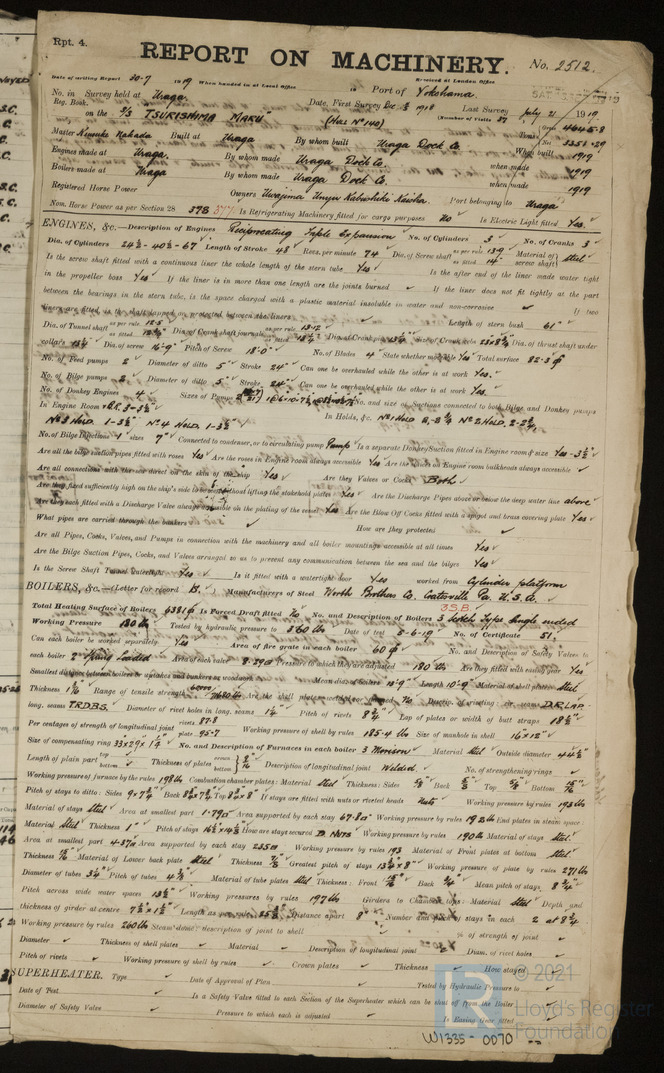 Rpt. 4.
REPORT ON MACHINERY. No. 2512.
Date of writing Report 30-7 1919 When handed in at Local Office Received at London Office
No. in Survey held at Uraga. Port of Yokohama
Reg. Book. Date, First Survey Dec 3 1918 Last Survey July 21 1919
on the S/S "TSUKISHIMA MARU" (Hull No 140) (Number of Visits 87
Master Kinsuke Nakada Built at Uraga By whom built Uraga Dock Co. When built 1919
Gross 4645.8
Net 3351.29
Engines made at Uraga. By whom made Uraga Dock Co. when made 1919
Boilers made at Uraga By whom made Uraga Dock Co. when made 1919
Registered Horse Power Owners Uwajima Unyu Kabushiki Kaisha. Port belonging to Uraga
Nom. Horse Power as per Section 28 378 377 Is Refrigerating Machinery fitted for cargo purposes No Is Electric Light fitted Yes.
ENGINES, &c.—Description of Engines Reciprocating Triple Expansion No. of Cylinders 3 No. of Cranks 3
Dia. of Cylinders 24½-40½-67 Length of Stroke 48 Revs. per minute 74 Dia. of Screw shaft as per rule 13.9 as fitted Material of screw shaft Steel
Is the screw shaft fitted with a continuous liner the whole length of the stern tube Yes Is the after end of the liner made water tight
in the propeller boss Yes If the liner is in more than one length are the joints burned If the liner does not fit tightly at the part
between the bearings in the stern tube, is the space charged with a plastic material insoluble in water and non-corrosive If two
liners are fitted, is the shaft lapped or protected between the liners Length of stern bush 61"
Dia. of Tunnel shaft as per rule 12.5 as fitted Dia. of Crank shaft journals as per rule 13.12 as fitted Dia. of Crank pin Size of Crank webs Dia. of thrust shaft under
collars 13½ Dia. of screw 16-9 Pitch of Screw 18-0 No. of Blades 4 State whether moveable Yes Total surface 82.3
No. of Feed pumps 2 Diameter of ditto 5" Stroke 24" Can one be overhauled while the other is at work Yes.
No. of Bilge pumps 2 Diameter of ditto 5" Stroke 24" Can one be overhauled while the other is at work Yes.
No. of Donkey Engines 4 Sizes of Pumps No. and size of Suctions connected to both Bilge and Donkey pumps
In Engine Room In Holds, &c. No 1 Hold No 2 Hold
No 3 Hold, 1-3½" No 4 Hold, 1-3½"
No. of Bilge Injections 1 sizes 7" Connected to condenser, or to circulating pump Pump Is a separate Donkey Suction fitted in Engine room & size Yes-3½"
Are all the bilge suction pipes fitted with roses Yes Are the roses in Engine room always accessible Yes Are the sluices on Engine room bulkheads always accessible
Are all connections with the sea direct on the skin of the ship Yes Are they Valves or Cocks Both
Are they fixed sufficiently high on the ship's side to be seen without lifting the stokehold plates Yes Are the Discharge Pipes above or below the deep water line above
Are they each fitted with a Discharge Valve always accessible on the plating of the vessel Yes Are the Blow Off Cocks fitted with a spigot and brass covering plate Yes
What pipes are carried through the bunkers How are they protected
Are all Pipes, Cocks, Valves, and Pumps in connection with the machinery and all boiler mountings accessible at all times Yes
Are the Bilge Suction Pipes, Cocks, and Valves arranged so as to prevent any communication between the sea and the bilges Yes
Is the Screw Shaft Tunnel watertight Yes Is it fitted with a watertight door Yes worked from Cylinder platform
BOILERS, &c.—(Letter for record B.) Manufacturers of Steel Worth Brothers Co. Coatesville Pa. U.S.A.
3.S.B.
Total Heating Surface of Boilers 6381 Is Forced Draft fitted No No. and Description of Boilers 3 Scotch Type Single ended
Working Pressure 180 lbs Tested by hydraulic pressure to 360 lbs Date of test 5-6-19 No. of Certificate 51.
Can each boiler be worked separately Yes Area of fire grate in each boiler 60 No. and Description of Safety Valves to
each boiler 2 Spring Loaded Area of each valve 8.29 Pressure to which they are adjusted 180 lbs Are they fitted with easing gear Yes
Smallest distance between boilers or uptakes and bunkers or woodwork Mean dia. of boilers Length 10-9 Material of shell plates Steel
Thickness Range of tensile strength Are the shell plates welded or flanged No Descrip. of riveting: cir. seams D.R.LAP.
long. seams T.R.D.B.S. Diameter of rivet holes in long. seams Pitch of rivets 8¾ Lap of plates or width of butt straps 18½
Per centages of strength of longitudinal joint rivets 87.8 plate 85.7 Working pressure of shell by rules 185.4 lbs Size of manhole in shell 16"×12"
Size of compensating ring No. and Description of Furnaces in each boiler 3 Morison Material Steel Outside diameter 44½"
Length of plain part top bottom Thickness of plates crown bottom Description of longitudinal joint Welded. No. of strengthening rings
Working pressure of furnace by the rules 198 lbs Combustion chamber plates: Material Steel Thickness: Sides Back Top Bottom
Pitch of stays to ditto: Sides Back Top If stays are fitted with nuts or riveted heads Nuts Working pressure by rules 193 lbs
Material of stays Steel Area at smallest part 1.79 Area supported by each stay 67.8 Working pressure by rules 192 lbs End plates in steam space:
Material Steel Thickness 1" Pitch of stays How are stays secured D. Nuts Working pressure by rules 190 lbs Material of stays Steel.
Area at smallest part 4.37 Area supported by each stay 235 Working pressure by rules 193 Material of Front plates at bottom Steel.
Thickness Material of Lower back plate Steel Thickness Greatest pitch of stays Working pressure of plate by rules 271 lbs
Diameter of tubes 3¼ Pitch of tubes Material of tube plates Steel Thickness: Front Back Mean pitch of stays 8¾
Pitch across wide water spaces 13½" Working pressures by rules 197 lbs Girders to Chamber tops: Material Steel Depth and
thickness of girder at centre Length as per rule Distance apart 8" Number and pitch of stays in each 2 at 8¾
Working pressure by rules 200 lbs Steam dome: description of joint to shell % of strength of joint
Diameter Thickness of shell plates Material Description of longitudinal joint Diam. of rivet holes
Pitch of rivets Working pressure of shell by rules Crown plates Thickness How stayed
SUPERHEATER. Type Date of Approval of Plan Tested by Hydraulic Pressure to
Date of Test Is a Safety Valve fitted to each Section of the Superheater which can be shut off from the Boiler
Diameter of Safety Valve Pressure to which each is adjusted Is Easing Gear fitted
W1335-0070
© 2021
Lloyd's Register
Foundation